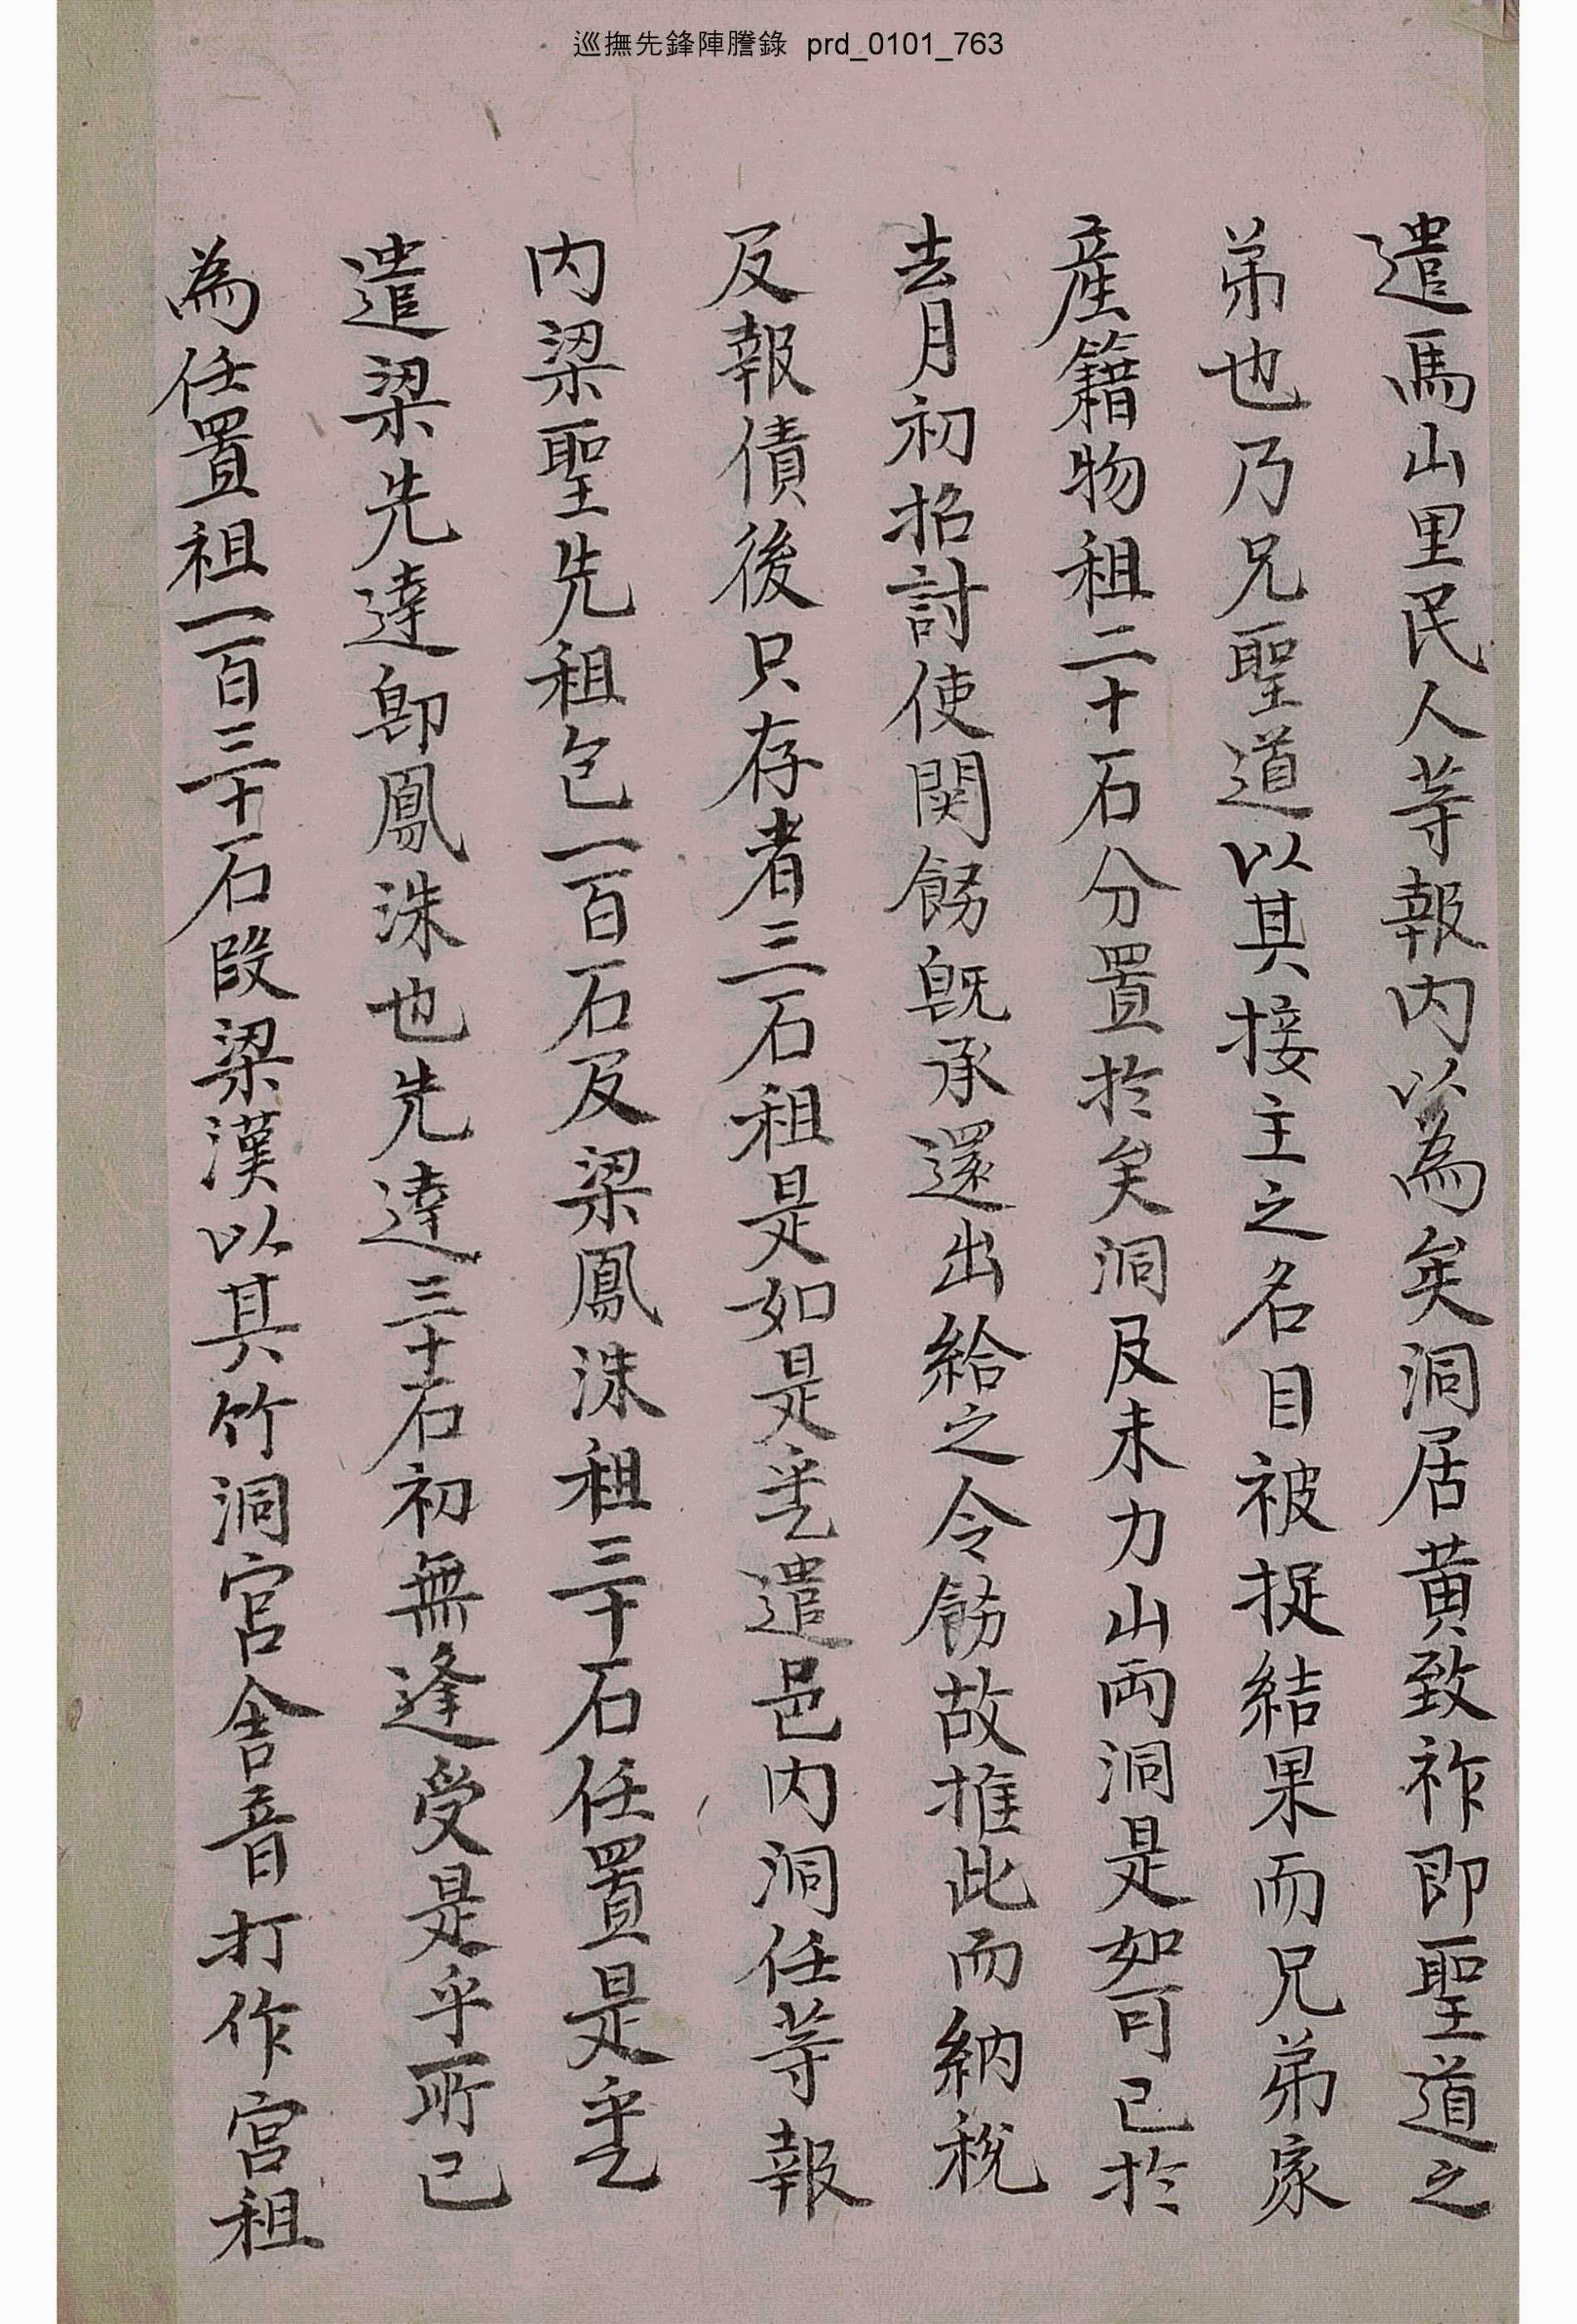 巡撫先鋒陣謄錄 prd_0101_763
遣馬山里民人等報內以為矣洞居黃致祚即聖道之
弟也乃兄聖道以其接主之名目被捉結果而兄弟家
產籍物租二十石分置於矣洞及未力山両洞是如可已於
去月初招討使関飭旣承還出給之令飭故推此而納稅
及報債後只存者三石租是如是乎乙遣邑內洞任等報
內梁聖先租包一百石及梁鳳洙租三十石任置是乎乙
遣梁先達卽鳳洙也先達三十石初無逢受是乎所已
為任置租一百三十石段梁漢以其竹洞宮舍音打作宮租